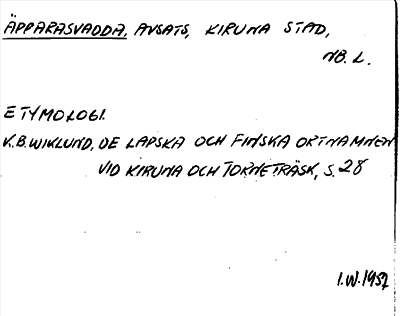 ÄPPARASVADDA, AVSATS, KIRUNA STAD,
NB. L.
ETYMOLOGI.
K.B. WIKLUND, DE LAPSKA OCH FINSKA ORTNAMNEN
VID KIRUNA OCH TORNETRÄSK, S. 28
I.W. 1952